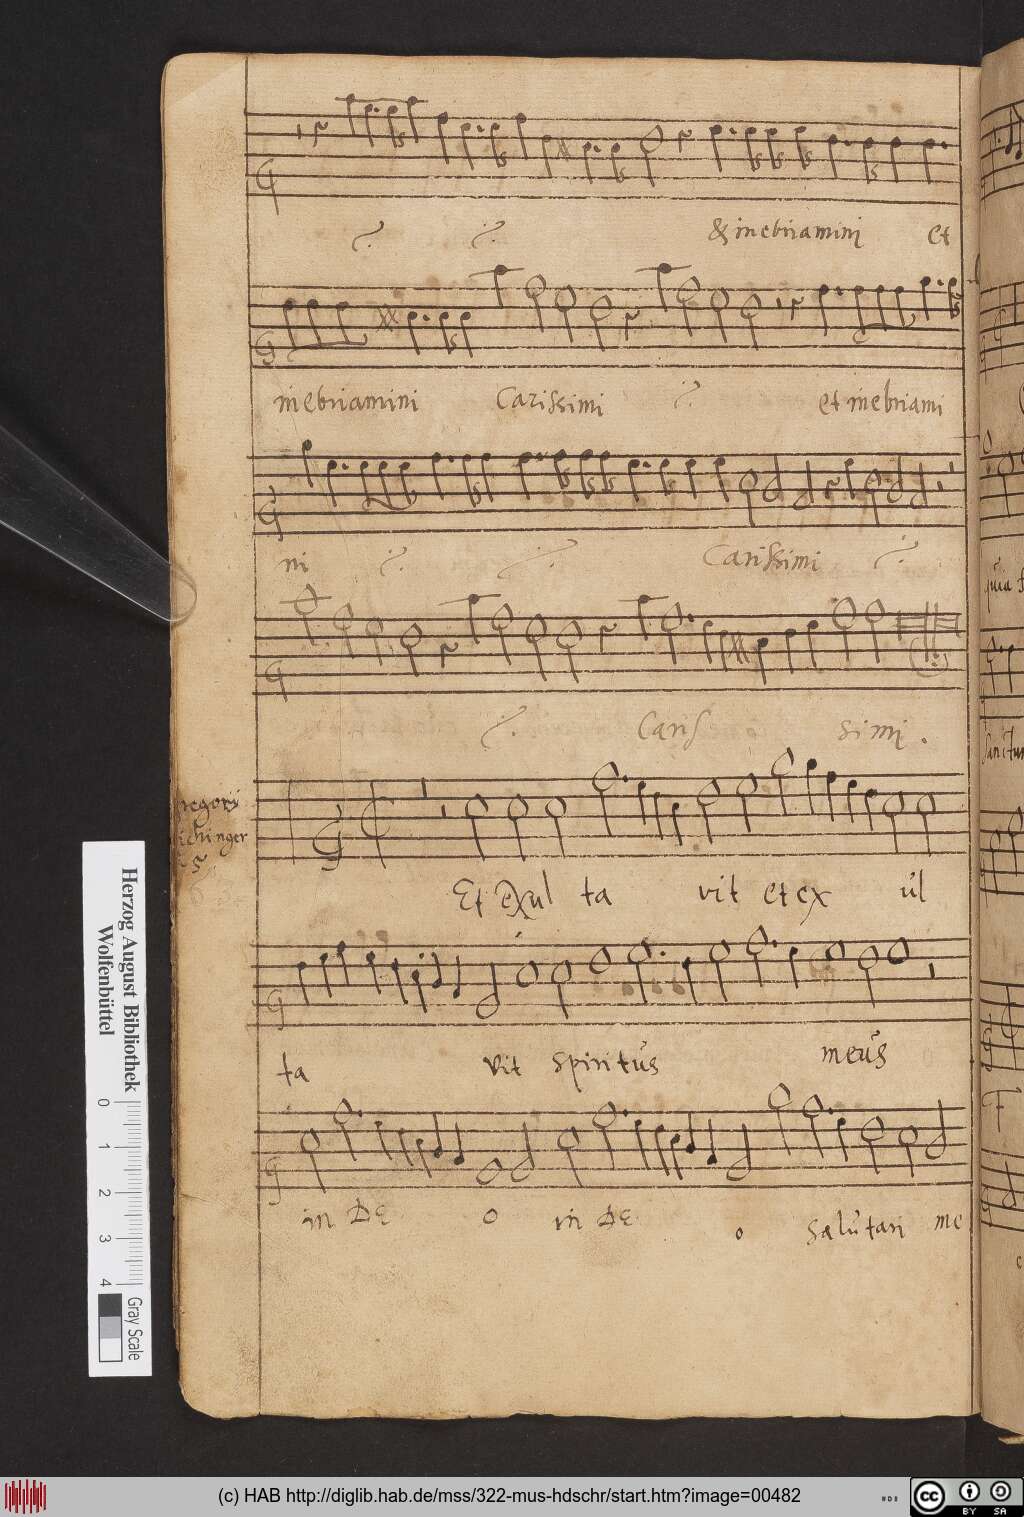 & inebriamini et
inebriamini Carissimi et inebriami
ni Carissimi
Caris simi.
Et exul ta vit et ex ul
ta vit spiritus meus
in DE O in DE o salutari me
Herzog August Bibliothek
Wolfenbüttel
0 1 2 3 4
Gray Scale
(c) HAB http://diglib.hab.de/mss/322-mus-hdschr/start.htm?image=00482
cc BY SA